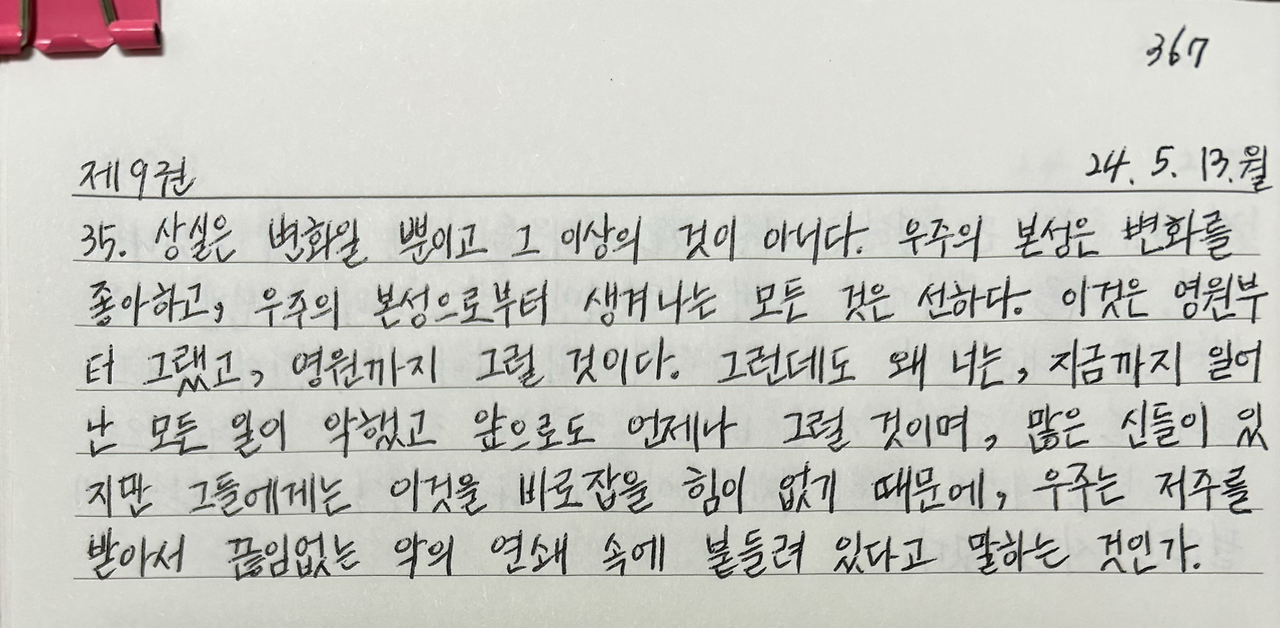 367
제9권 24. 5. 13. 월
35. 상실은 변화일 뿐이고 그 이상의 것이 아니다. 우주의 본성은 변화를
좋아하고, 우주의 본성으로부터 생겨나는 모든 것은 선하다. 이것은 영원부
터 그랬고, 영원까지 그럴 것이다. 그런데도 왜 너는, 지금까지 일어
난 모든 일이 악했고 앞으로도 언제나 그럴 것이며, 많은 신들이 있
지만 그들에게는 이것을 바로잡을 힘이 없기 때문에, 우주는 저주를
받아서 끊임없는 악의 연쇄 속에 붙들려 있다고 말하는 것인가.